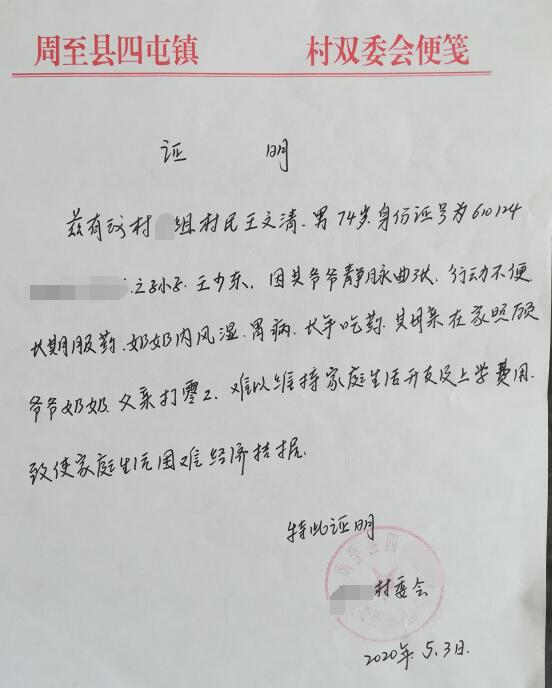 周至县四屯镇 村双委会便笺
证 明
兹有我村 组村民王文清.男74岁身份证号为610124
之孙子.王少东.因其爷爷静脉曲张.行动不便
长期服药.奶奶内风湿.胃病.长年吃药.其母亲在家照顾
爷爷奶奶.父亲打零工.难以维持家庭生活开支及上学费用.
致使家庭生活困难经济拮据.
特此证明
周至县四
村委会
2020年.5.3日.